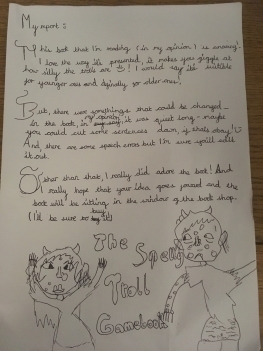 My report :
This book that I'm reading (in my opinion) is amazing!
I love the way it's presented, it makes you giggle at
how silly the trolls are! I would say it's suitable
for younger ones and definitely for older ones!
But, there was somethings that could be changed -
in the book, in my opinion, it was quite long - maybe
you could cut some sentences down, if that's okay!
And, there are some speech errors but I'm sure you'll sort
it out.
Other than that, I really did adore the book! And
really hope that your idea goes forward and the
book will be sitting in the window of the book shop.
(I'll be sure to buy it!)
The
Spelly
Troll
Gamebook